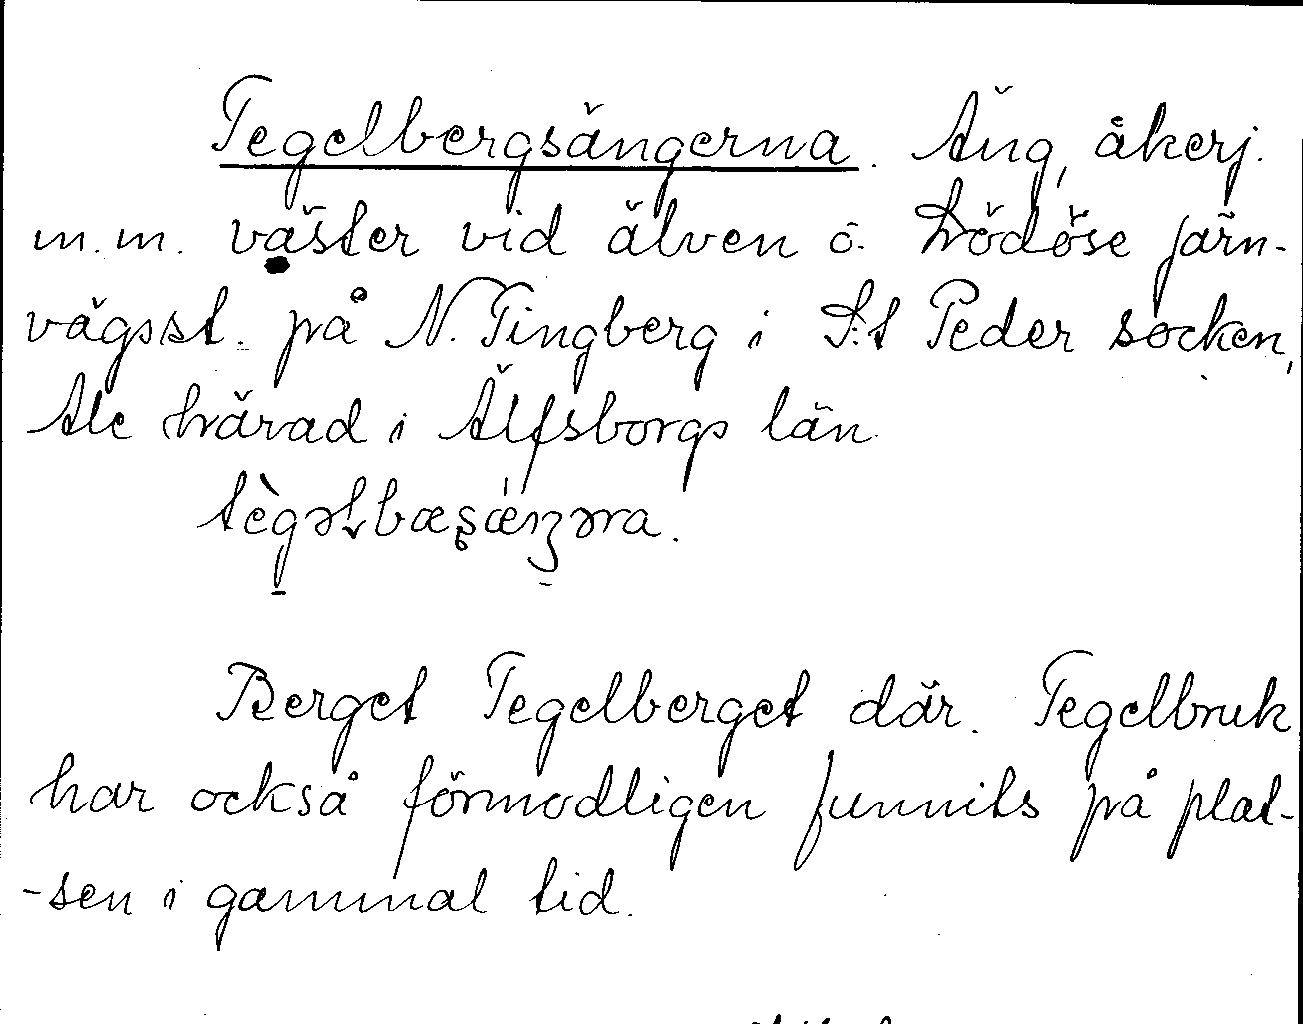 Tegelbergsängerna. Äng, åkerj.
m.m. väster vid älven ö. Lödöse järn-
vägsst. på N. Tingberg i S:t Peder socken,
Ale härad i Älfsborgs län.
tègəɫbæʂæ̀ŋəra.
Berget Tegelberget där. Tegelbruk
har också förmodligen funnits på plat-
-sen i gammal tid.